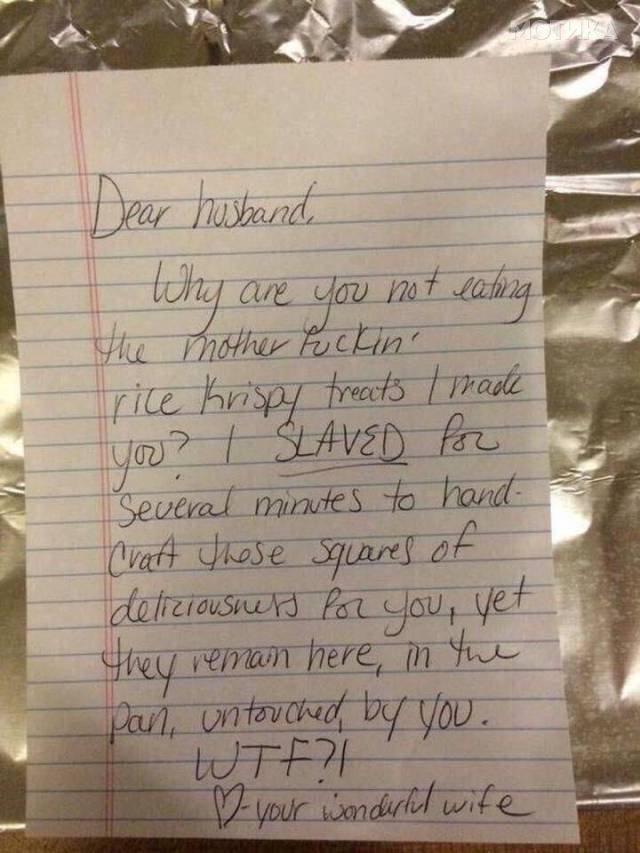 МОТИКА
Dear husband,
Why are you not eating
the mother fuckin'
rice krispy treats I made
you? I SLAVED for
several minutes to hand-
craft these squares of
deliciousness for you, yet
they remain here, in the
pan, untouched, by you.
WTF?!
♡-your wonderful wife